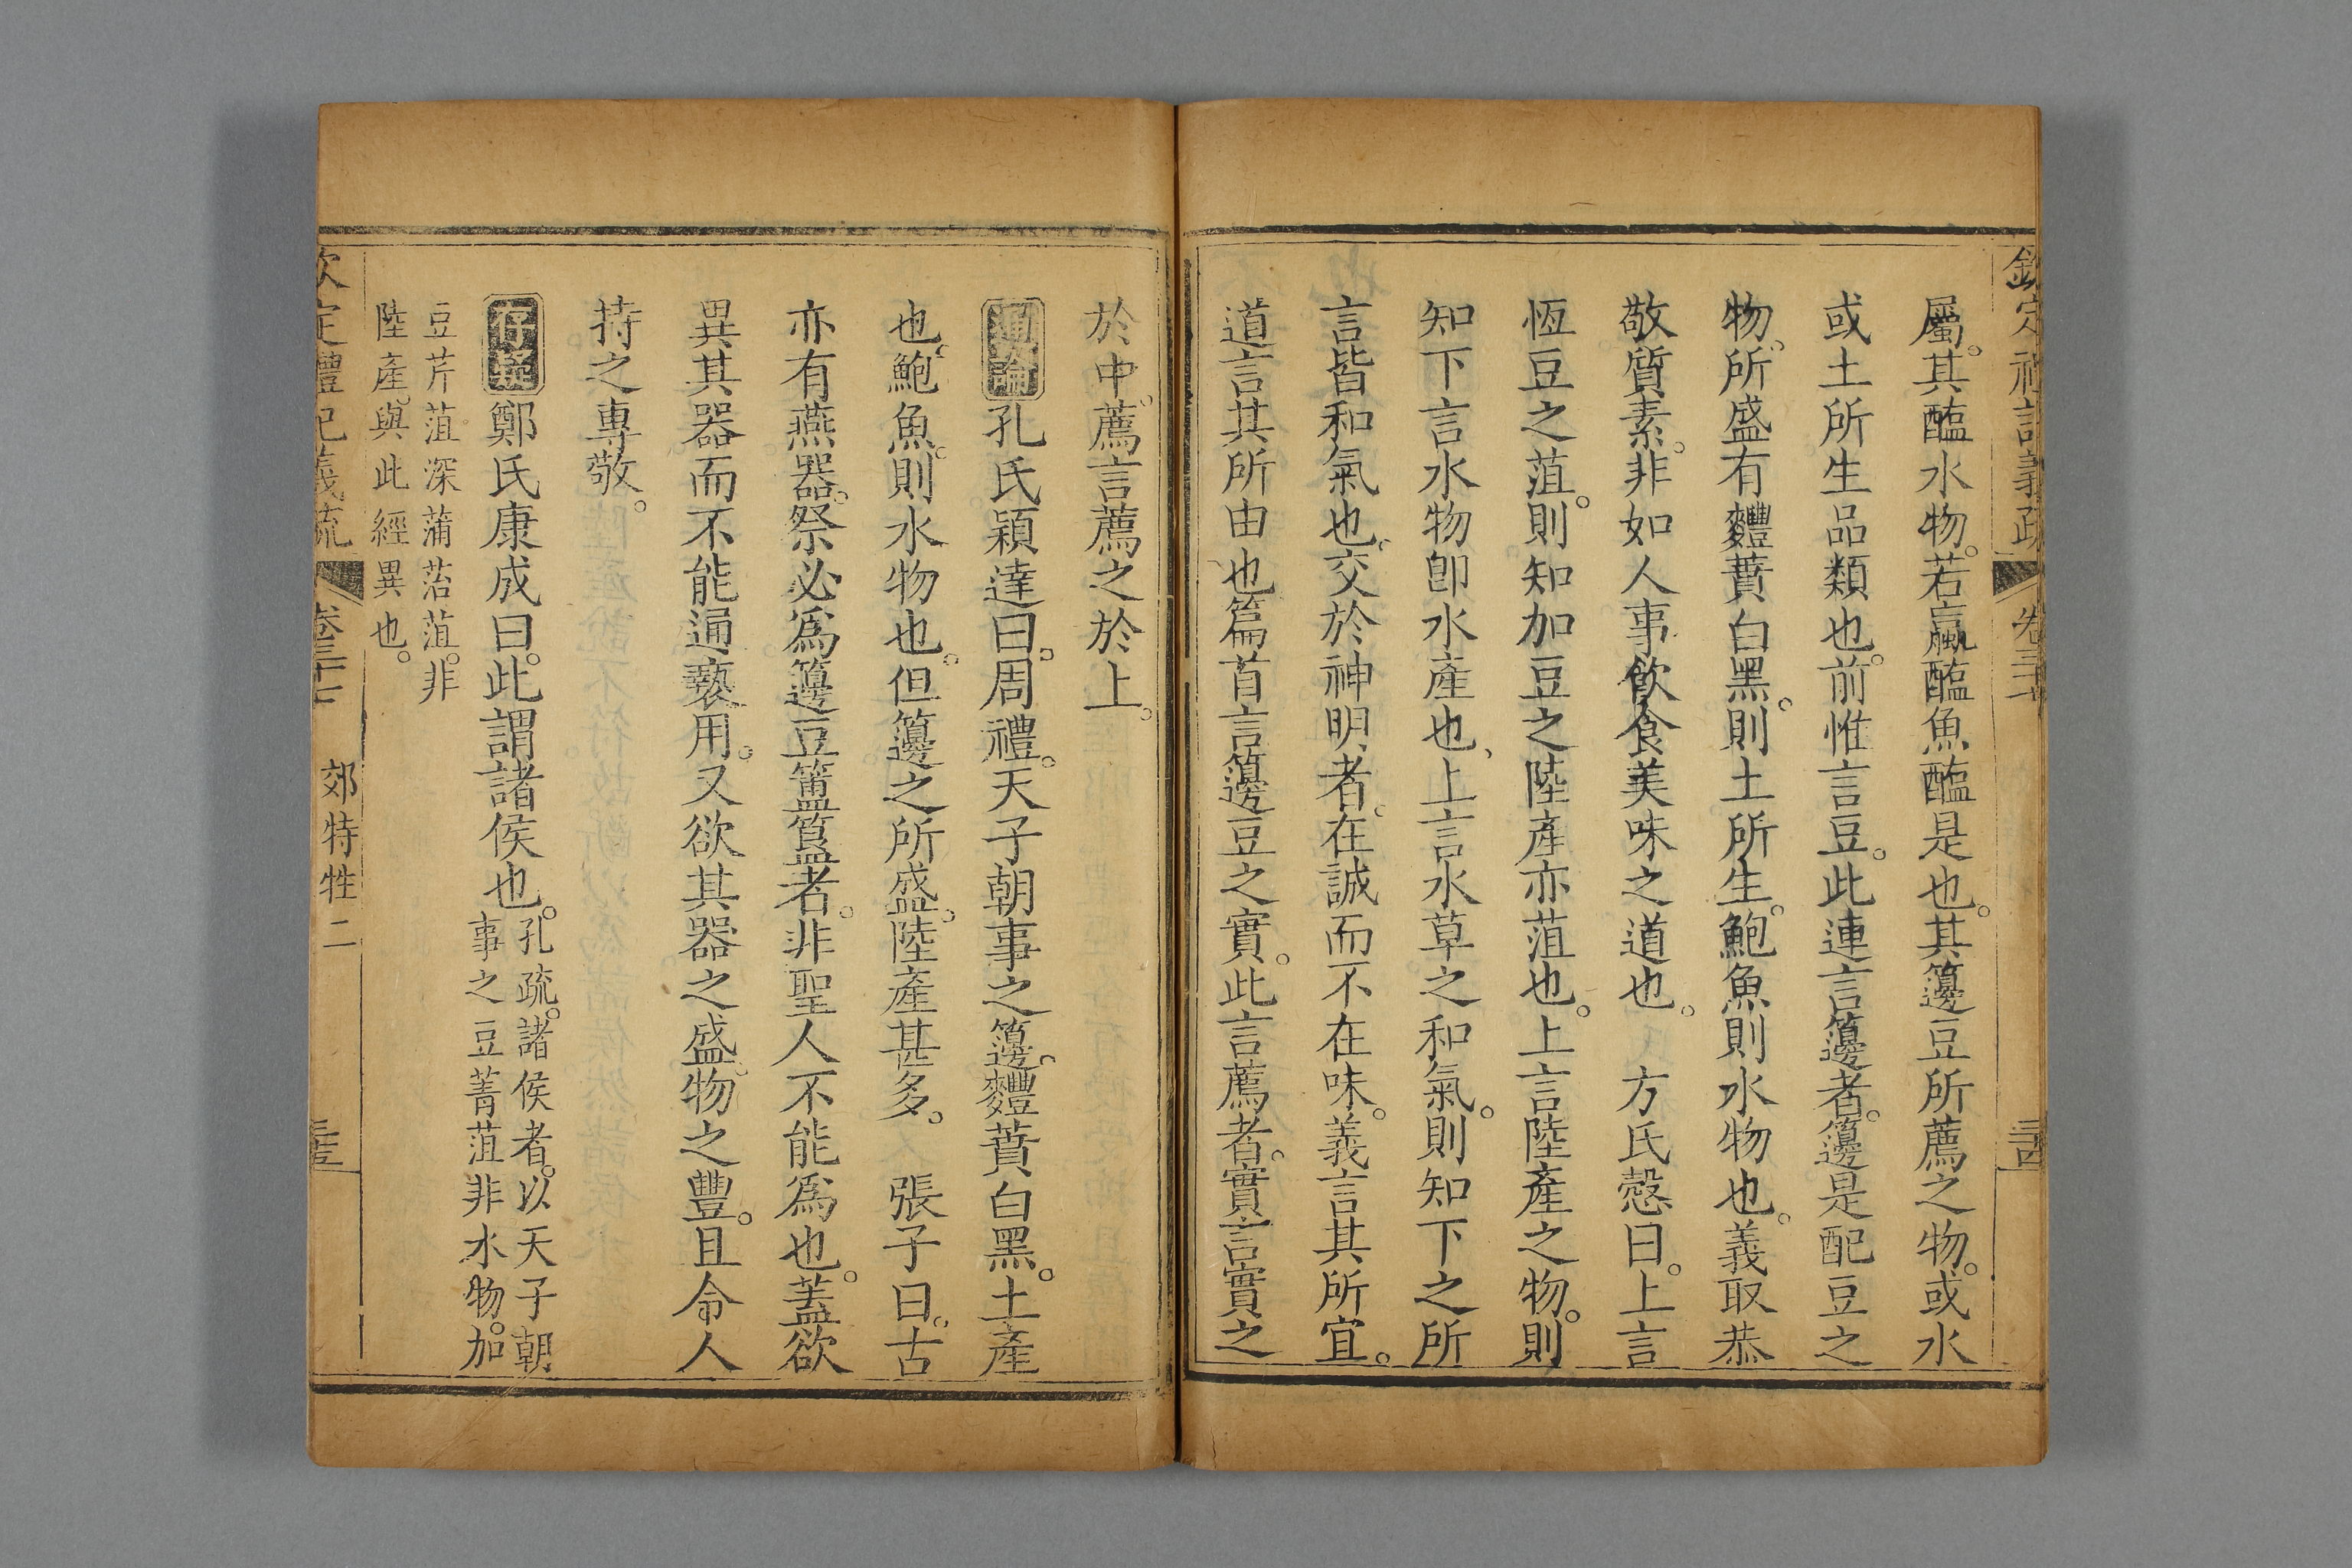 欽定禮記義疏 卷三十 三百
屬。其醢水物。若蠃醢魚醢是也。其籩豆所薦之物。或水
或土所生品類也。前惟言豆。此連言籩者。籩是配豆之
物。所盛有麷蕡白黑。則土所生。鮑魚則水物也。義取恭
敬質素。非如人事飲食美味之道也。方氏慤曰。上言
恆豆之菹。則知加豆之陸產亦菹也。上言陸產之物。則
知下言水物卽水產也、上言水草之和氣。則知下之所
言皆和氣也。交於神明者。在誠而不在味。義言其所宜。
道言其所由也、篇首言籩豆之實。此言薦者。實言實之
於中。薦言薦之於上。
通論孔氏穎達曰。周禮。天子朝事之籩。麷蕡白黑。土產
也。鮑魚。則水物也。但籩之所盛。陸產甚多。 張子曰。古
亦有燕器。祭必爲籩豆簠簋者。非聖人不能爲也。蓋欲
異其器而不能通褻用。又欲其器之盛。物之豐。且令人
持之專敬。
存疑鄭氏康成曰。此謂諸侯也。孔疏。諸侯者。以天子朝
事之豆菁菹非水物。加
豆芹菹。深蒲菭菹。非
陸產。與此經異也。
欽定禮記義疏 卷三十七 郊特牲二